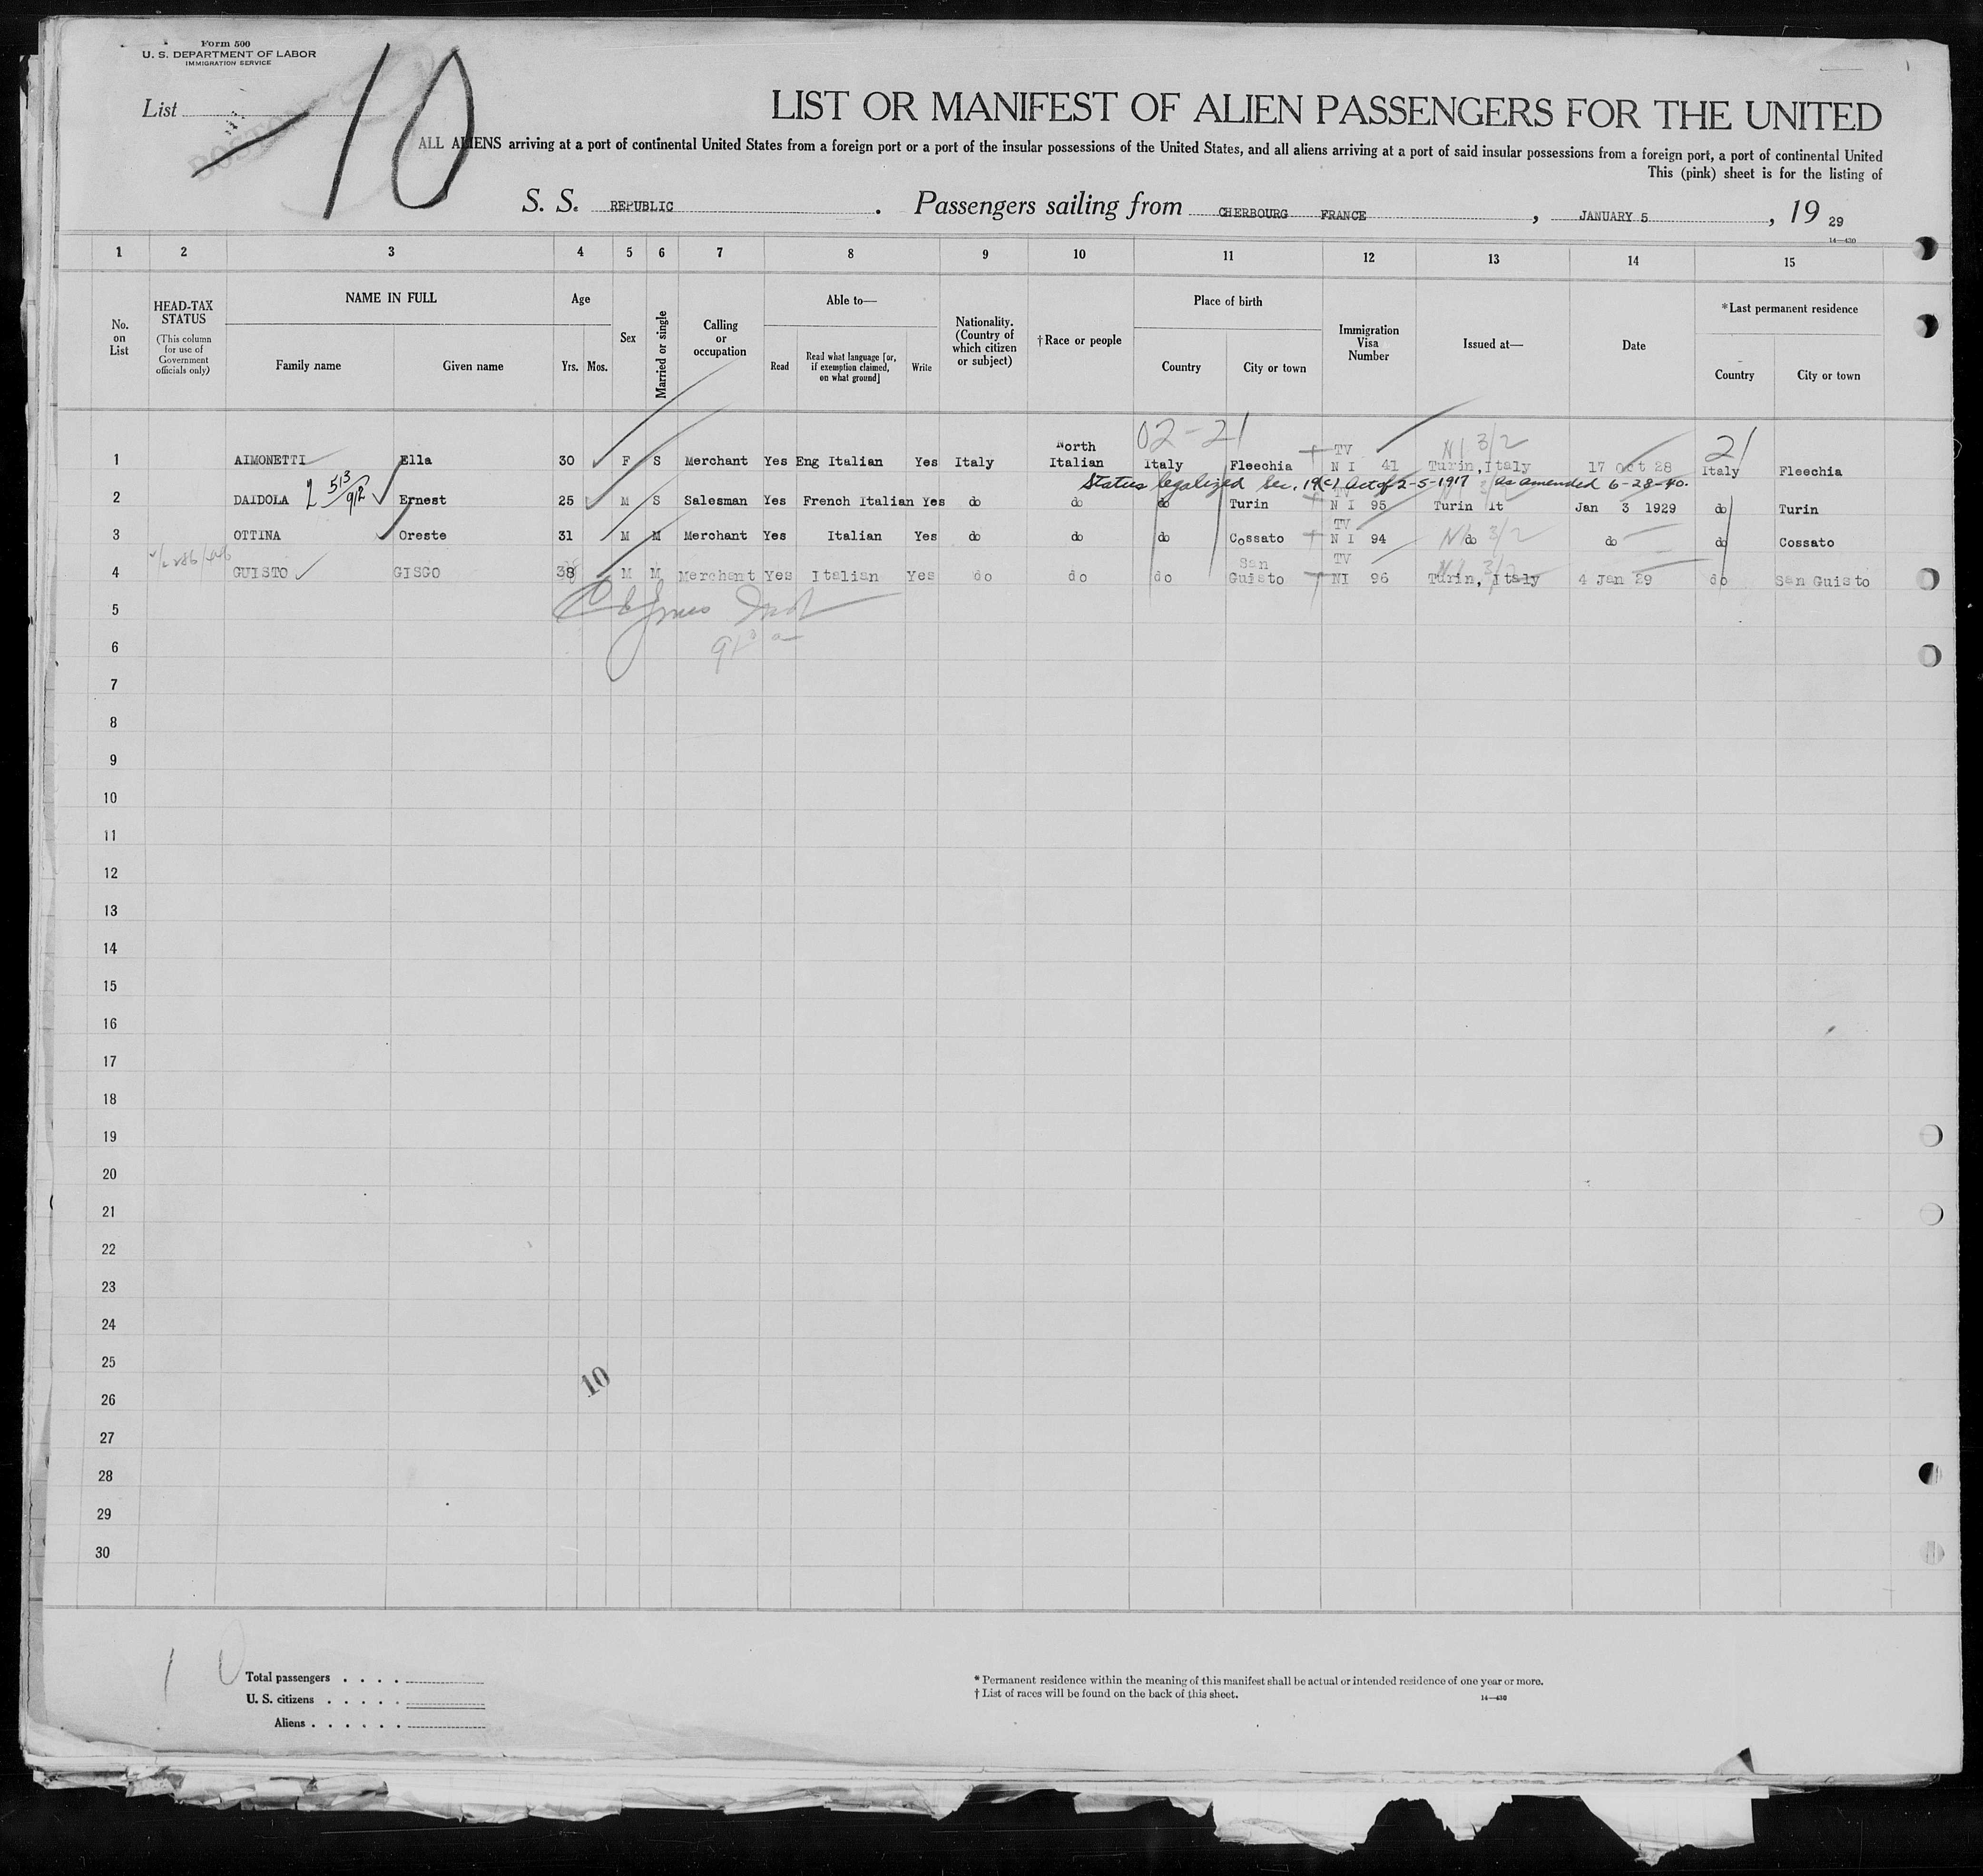 Form 500
U. S. DEPARTMENT OF LABOR
IMMIGRATION SERVICE
List
10
LIST OR MANIFEST OF ALIEN PASSENGERS FOR THE UNITED
ALL ALIENS arriving at a port of continental United States from a foreign port or a port of the insular possessions of the United States, and all aliens arriving at a port of said insular possessions from a foreign port, a port of continental United
This (pink) sheet is for the listing of
S. S. REPUBLIC . Passengers sailing from CHERBOURG FRANCE , JANUARY 5 , 19 29
14—430
1 2 3 4 5 6 7 8 9 10 11 12 13 14 15
No. on List
HEAD-TAX STATUS
(This column for use of Government officials only)
NAME IN FULL
Family name Given name
Age
Yrs. Mos.
Sex
Married or single
Calling or occupation
Able to—
Read
Read what language [or, if exemption claimed, on what ground]
Write
Nationality. (Country of which citizen or subject)
†Race or people
Place of birth
Country City or town
Immigration Visa Number
Issued at—
Date
*Last permanent residence
Country City or town
02-21 N I 3/2 21
1 AIMONETTI Ella 30 F S Merchant Yes Eng Italian Yes Italy North Italian Italy Fleechia TV N I 41 Turin, Italy 17 oct 28 Italy Fleechia
Status legalized Sec. 19(c) Act of 2-5-1917 as amended 6-28-40.
2 DAIDOLA 2 513/912 Ernest 25 M S Salesman Yes French Italian Yes do do do Turin TV N I 95 Turin It Jan 3 1929 do Turin
3 OTTINA Oreste 31 M M Merchant Yes Italian Yes do do do Cossato TV N I 94 do 3/2 do do Cossato
4 GUISTO GISGO 38 M M Merchant Yes Italian Yes do do do San Guisto TV NI 96 Turin, Italy 4 Jan 29 do San Guisto
5
6
7
8
9
10
11
12
13
14
15
16
17
18
19
20
21
22
23
24
25
10
26
27
28
29
30
10
Total passengers
U. S. citizens
Aliens
* Permanent residence within the meaning of this manifest shall be actual or intended residence of one year or more.
† List of races will be found on the back of this sheet.
14—430